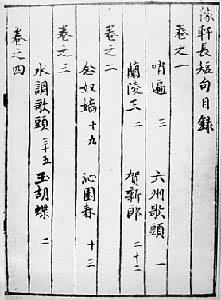 稼軒長短句目錄
卷之一
哨遍 三　六州歌頭 一
蘭陵王 二　賀新郎 二十二
卷之二
念奴嬌 十九　沁園春 十二
卷之三
水調歌頭 三十五　玉胡蝶 二
卷之四